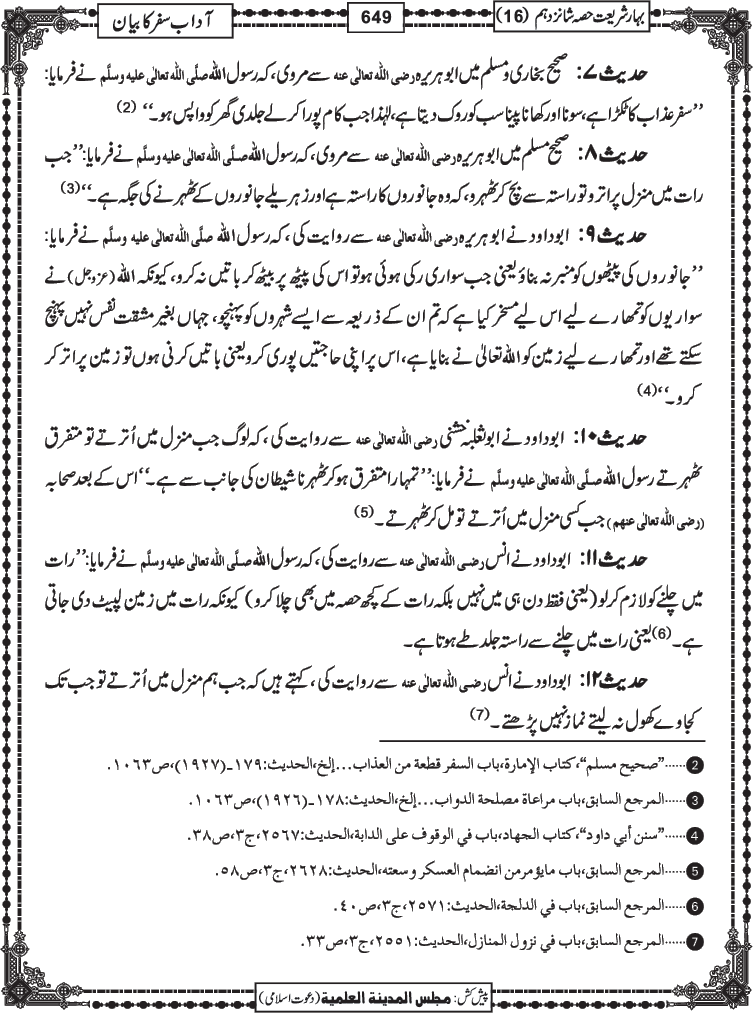 بہارِ شریعت حصہ شانزدہم (16)
649
آدابِ سفر کا بیان
حدیث ۷: صحیح بخاری و مسلم میں ابوہریرہ رضی اللہ تعالٰی عنہ سے مروی، کہ رسول اللہ صلَّی اللہ تعالٰی علیہ وسلَّم نے فرمایا:
’’سفر عذاب کا ٹکڑا ہے، سونا اور کھانا پینا سب کو روک دیتا ہے، لہٰذا جب کام پورا کرلے جلدی گھر کو واپس ہو۔‘‘ (2)
حدیث ۸: صحیح مسلم میں ابوہریرہ رضی اللہ تعالٰی عنہ سے مروی، کہ رسول اللہ صلَّی اللہ تعالٰی علیہ وسلَّم نے فرمایا: ’’جب
رات میں منزل پر اترو تو راستہ سے بچ کر ٹھہرو، کہ وہ جانوروں کا راستہ ہے اور زہریلے جانوروں کے ٹھہرنے کی جگہ ہے۔‘‘ (3)
حدیث ۹: ابوداود نے ابوہریرہ رضی اللہ تعالٰی عنہ سے روایت کی، کہ رسول اللہ صلَّی اللہ تعالٰی علیہ وسلَّم نے فرمایا:
’’جانوروں کی پیٹھوں کو منبر نہ بناؤ یعنی جب سواری رکی ہوئی ہو تو اس کی پیٹھ پر بیٹھ کر باتیں نہ کرو، کیونکہ اللہ (عزوجل) نے
سواریوں کو تمھارے لیے اس لیے مسخر کیا ہے کہ تم ان کے ذریعہ سے ایسے شہروں کو پہنچو، جہاں بغیر مشقت نفس نہیں پہنچ
سکتے تھے اور تمھارے لیے زمین کو اللہ تعالٰی نے بنایا ہے، اس پر اپنی حاجتیں پوری کرو یعنی باتیں کرنی ہوں تو زمین پر اتر کر
کرو۔‘‘ (4)
حدیث ۱۰: ابوداود نے ابوثعلبہ خشنی رضی اللہ تعالٰی عنہ سے روایت کی، کہ لوگ جب منزل میں اُترتے تو متفرق
ٹھہرتے رسول اللہ صلَّی اللہ تعالٰی علیہ وسلَّم نے فرمایا: ’’تمہارا متفرق ہوکر ٹھہرنا شیطان کی جانب سے ہے۔‘‘ اس کے بعد صحابہ
(رضی اللہ تعالٰی عنھم) جب کسی منزل میں اُترتے تو مل کر ٹھہرتے۔ (5)
حدیث ۱۱: ابوداود نے انس رضی اللہ تعالٰی عنہ سے روایت کی، کہ رسول اللہ صلَّی اللہ تعالٰی علیہ وسلَّم نے فرمایا: ’’رات
میں چلنے کو لازم کرلو (یعنی فقط دن ہی میں نہیں بلکہ رات کے کچھ حصہ میں بھی چلا کرو) کیونکہ رات میں زمین لپیٹ دی جاتی
ہے۔ (6) یعنی رات میں چلنے سے راستہ جلد طے ہوتا ہے۔
حدیث ۱۲: ابوداود نے انس رضی اللہ تعالٰی عنہ سے روایت کی، کہتے ہیں کہ جب ہم منزل میں اُترتے تو جب تک
کجاوے کھول نہ لیتے نماز نہیں پڑھتے۔ (7)
2 ......”صحیح مسلم“، کتاب الإمارة، باب السفر قطعة من العذاب...إلخ، الحدیث: ۱۷۹۔(۱۹۲۷)، ص۱۰۶۳.
3 ......المرجع السابق، باب مراعاة مصلحة الدواب...إلخ، الحدیث: ۱۷۸۔(۱۹۲۶)، ص۱۰۶۳.
4 ......”سنن أبي داود“، کتاب الجهاد، باب في الوقوف علی الدابة، الحدیث: ۲۵۶۷، ج۳، ص۳۸.
5 ......المرجع السابق، باب مایؤمر من انضمام العسکر وسعته، الحدیث: ۲۶۲۸، ج۳، ص۵۸.
6 ......المرجع السابق، باب في الدلجة، الحدیث: ۲۵۷۱، ج۳، ص۴۰.
7 ......المرجع السابق، باب في نزول المنازل، الحدیث: ۲۵۵۱، ج۳، ص۳۳.
پیش کش: مجلس المدینة العلمیة (دعوت اسلامی)